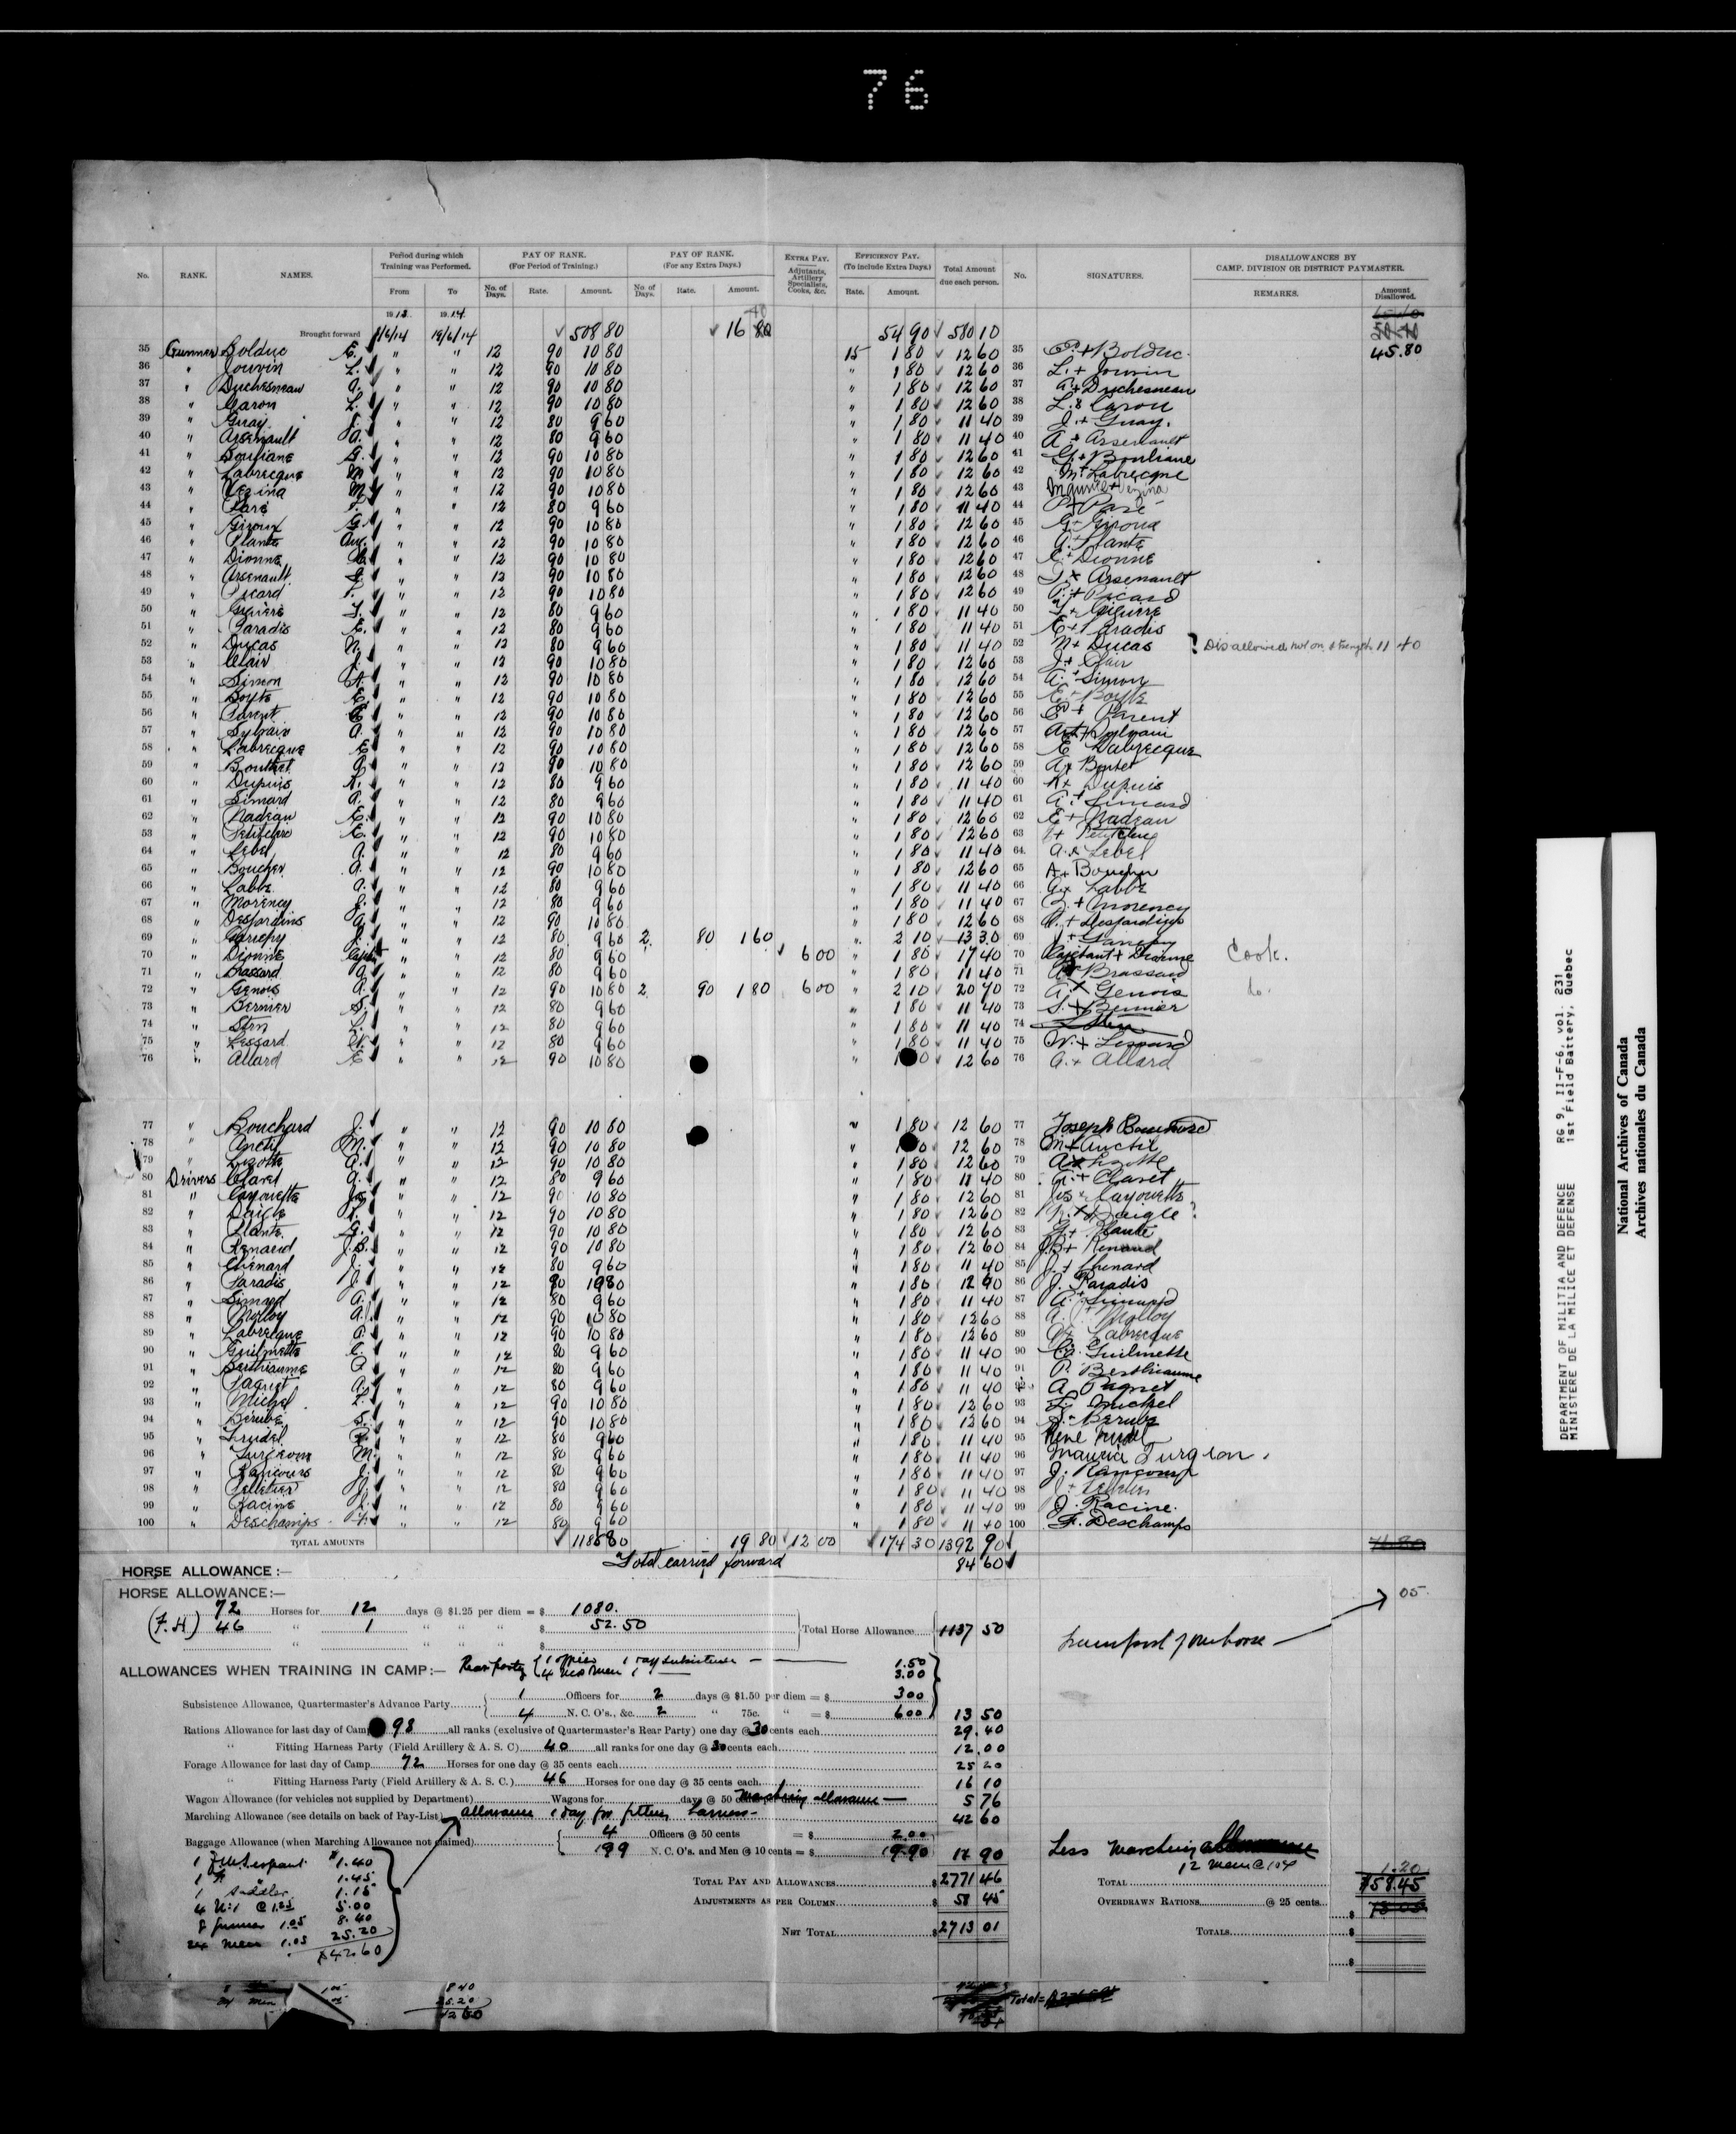 76
No. RANK. NAMES. Period during which Training was Performed. PAY OF RANK. (For Period of Training.) PAY OF RANK. (For any Extra Days.) EXTRA PAY. Adjutants, Artillery Specialists, Cooks, &c. EFFICIENCY PAY. (To include Extra Days.) Total Amount due each person. No. SIGNATURES. DISALLOWANCES BY CAMP, DIVISION OR DISTRICT PAYMASTER.
From To No. of Days. Rate. Amount. No. of Days. Rate. Amount. Rate. Amount. REMARKS. Amount Disallowed.
Brought forward 508 80 16 80 54 90 580 10
45.80
35 Gunner Bolduc E. " " 12 90 10 80 15 1 80 12 60 35 E. + Bolduc
36 " Jouvin L. " " 12 90 10 80 " 1 80 12 60 36 L. + Jouvin
37 " Duchesneau A. " " 12 90 10 80 " 1 80 12 60 37 A + Duchesneau
38 " Caron L. " " 12 90 10 80 " 1 80 12 60 38 L. Caron
39 " Guay J. " " 12 80 9 60 " 1 80 11 40 39 J. + Guay.
40 " Arsenault A. " " 12 80 9 60 " 1 80 11 40 40 A + Arsenault
41 " Bouliane G. " " 12 90 10 80 " 1 80 12 60 41 G. + Bouliane
42 " Labrecque M " " 12 90 10 80 " 1 80 12 60 42 M + Labrecque
43 " Vezina M " " 12 90 10 80 " 1 80 12 60 43 Vezina
44 " Paré P. " " 12 80 9 60 " 1 80 11 40 44 P + Paré
45 " Giroux G. " " 12 90 10 80 " 1 80 12 60 45 G + Giroux
46 " Plante Aug. " " 12 90 10 80 " 1 80 12 60 46 A. Plante
47 " Dionne E. " " 12 90 10 80 " 1 80 12 60 47 E + Dionne
48 " Arsenault " " 12 90 10 80 " 1 80 12 60 48 Arsenault
49 " Picard P. " " 12 90 10 80 " 1 80 12 60 49 P. + Picard
50 " " " 12 80 9 60 " 1 80 11 40 50
51 " Paradis E. " " 12 80 9 60 " 1 80 11 40 51 E + Paradis
52 " Ducas N. " " 12 80 9 60 " 1 80 11 40 52 N + Ducas Disallowed not on strength 11 40
53 " Clair J. " " 12 90 10 80 " 1 80 12 60 53 J. + Clair
54 " Simon A. " " 12 90 10 80 " 1 80 12 60 54 A. + Simon
55 " Boyte E. " " 12 90 10 80 " 1 80 12 60 55 E + Boyte
56 " Parent E " " 12 90 10 80 " 1 80 12 60 56 E + Parent
57 " Sylvain A. " " 12 90 10 80 " 1 80 12 60 57 Sylvain
58 " Labrecque E " " 12 90 10 80 " 1 80 12 60 58 E Labrecque
59 " Bouthet A. " " 12 90 10 80 " 1 80 12 60 59 A + Boutet
60 " Dupuis " " 12 80 9 60 " 1 80 11 40 60 Dupuis
61 " Simard A. " " 12 80 9 60 " 1 80 11 40 61 A. + Simard
62 " Nadeau E. " " 12 90 10 80 " 1 80 12 60 62 E + Nadeau
53 " Petitclerc E. " " 12 90 10 80 " 1 80 12 60 63 Petitclerc
64 " Lebel A. " " 12 80 9 60 " 1 80 11 40 64 A. + Lebel
65 " Boucher A. " " 12 90 10 80 " 1 80 12 60 65 A + Boucher
66 " Labbe A. " " 12 80 9 60 " 1 80 11 40 66 Labbe
67 " Morency " " 12 80 9 60 " 1 80 11 40 67 + Morency
68 " Desjardins A " " 12 90 10 80 " 1 80 12 60 68 A. + Desjardins
69 " Gariepy J. " " 12 80 9 60 2 80 1 60 " 2 10 13 30 69 J + Gariepy
70 " Dionne " " 12 80 9 60 6 00 " 1 80 17 40 70 + Dionne Cook.
71 " Brassard A. " " 12 80 9 60 " 1 80 11 40 71 Brassard
72 " Genois A. " " 12 90 10 80 2 90 1 80 6 00 " 2 10 20 70 72 A. + Genois do.
73 " Bernier S. " " 12 80 9 60 " 1 80 11 40 73 S. + Bernier
74 " Sten L. " " 12 80 9 60 " 1 80 11 40 74 L Sten
75 " Lessard W. " " 12 80 9 60 " 1 80 11 40 75 W. + Lessard
76 " Allard E " " 12 90 10 80 " 12 60 76 + Allard
77 " Bouchard J. " " 12 90 10 80 " 1 80 12 60 77 Joseph Bouchard
78 " Anctil M. " " 12 90 10 80 12 60 78 M + Anctil
79 " Lizotte A. " " 12 90 10 80 " 1 80 12 60 79 Lizotte
80 Drivers Claret A. " " 12 80 9 60 " 1 80 11 40 80 + Claret
81 " Cayouette Jos " " 12 90 10 80 " 1 80 12 60 81 Jos + Cayouette
82 " Daigle " " 12 90 10 80 " 1 80 12 60 82 + Daigle
83 " Plante G. " " 12 90 10 80 " 1 80 12 60 83 G + Plante
84 " Renaud J.B. " " 12 90 10 80 " 1 80 12 60 84 JB + Renaud
85 " Chenard J. " " 12 80 9 60 " 1 80 11 40 85 J. + Chenard
86 " Paradis J. " " 12 90 10 80 " 1 80 12 90 86 J. Paradis
87 " Simard A. " " 12 80 9 60 " 1 80 11 40 87 A. Simard
88 " Molloy A. " " 12 90 10 80 " 1 80 12 60 88 A. Molloy
89 " Labrecque A. " " 12 90 10 80 " 1 80 12 60 89 Labrecque
90 " Guilmette C. " " 12 80 9 60 " 1 80 11 40 90 Guilmette
91 " Berthiaume P " " 12 80 9 60 " 1 80 11 40 91 P. Berthiaume
92 " Paquet A. " " 12 80 9 60 " 1 80 11 40 92 A. Paquet
93 " Michel L. " " 12 90 10 80 " 1 80 12 60 93 L. Michel
94 " Berube S. " " 12 90 10 80 " 1 80 12 60 94 S. Berube
95 " Trudel R. " " 12 80 9 60 " 1 80 11 40 95 René Trudel
96 " Turgeon M. " " 12 80 9 60 " 1 80 11 40 96 Maurice Turgeon.
97 " Rancourt J. " " 12 80 9 60 " 1 80 11 40 97 J. Rancourt
98 " Pelletier J. " " 12 80 9 60 " 1 80 11 40 98 J + Pelletier
99 " Racine J. " " 12 80 9 60 " 1 80 11 40 99 J. Racine.
100 " Deschamps F. " " 12 80 9 60 " 1 80 11 40 100 F. Deschamps
TOTAL AMOUNTS 1185 80 19 80 12 00 174 30 1392 90
Total carried forward 84 60
HORSE ALLOWANCE :—
HORSE ALLOWANCE:—
72 Horses for 12 days @ $1.25 per diem = $ 1080.
(F.H) 46 " 1 " " " $ 52.50 Total Horse Allowance 1137 50
05.
$
ALLOWANCES WHEN TRAINING IN CAMP:— Rear party 1 officer 1 day subsistence — 1.50
4 men 1 — 3.00
Subsistence Allowance, Quartermaster's Advance Party 1 Officers for 2 days @ $1.50 per diem = $ 3 00
4 N. C. O's., &c. 2 " 75c. " = $ 6 00 13 50
Rations Allowance for last day of Camp 98 all ranks (exclusive of Quartermaster's Rear Party) one day @ 30 cents each 29.40
" Fitting Harness Party (Field Artillery & A. S. C) 40 all ranks for one day @ 30 cents each 12.00
Forage Allowance for last day of Camp 72 Horses for one day @ 35 cents each 25 20
" Fitting Harness Party (Field Artillery & A. S. C.) 46 Horses for one day @ 35 cents each 16 10
Wagon Allowance (for vehicles not supplied by Department) Wagons for days @ 50 cents Marching allowance — 5 76
Marching Allowance (see details on back of Pay-List) allowance 1 day for fitting harness — 42 60
Baggage Allowance (when Marching Allowance not claimed) 4 Officers @ 50 cents = $ 2.00
199 N. C. O's. and Men @ 10 cents = $ 19.90 17 90
Less Marching allowance
12 men @ 10¢ 1.20
$1.40
1 1.45
1 Saddler 1.15
4 @ 1.25 5.00
8 Gunner 1.05 8.40
24 men 1.05 25.20
$42.60
TOTAL PAY AND ALLOWANCES $ 2771 46
ADJUSTMENTS AS PER COLUMN $ 58 45
NET TOTAL $ 2713 01
TOTAL $58.45
OVERDRAWN RATIONS @ 25 cents
TOTALS $
$
24 men 8 40
25.20
42 60
Total =
DEPARTMENT OF MILITIA AND DEFENCE RG 9, II-F-6, vol. 231
MINISTERE DE LA MILICE ET DEFENSE 1st Field Battery, Quebec
National Archives of Canada
Archives nationales du Canada